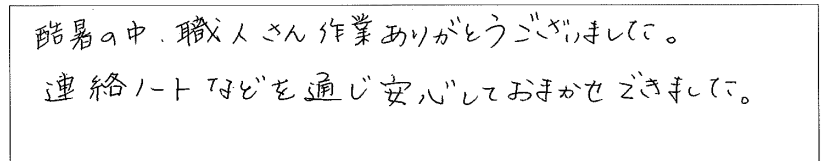 酷暑の中、職人さん作業ありがとうございました。
連絡ノートなどを通じ安心しておまかせできました。